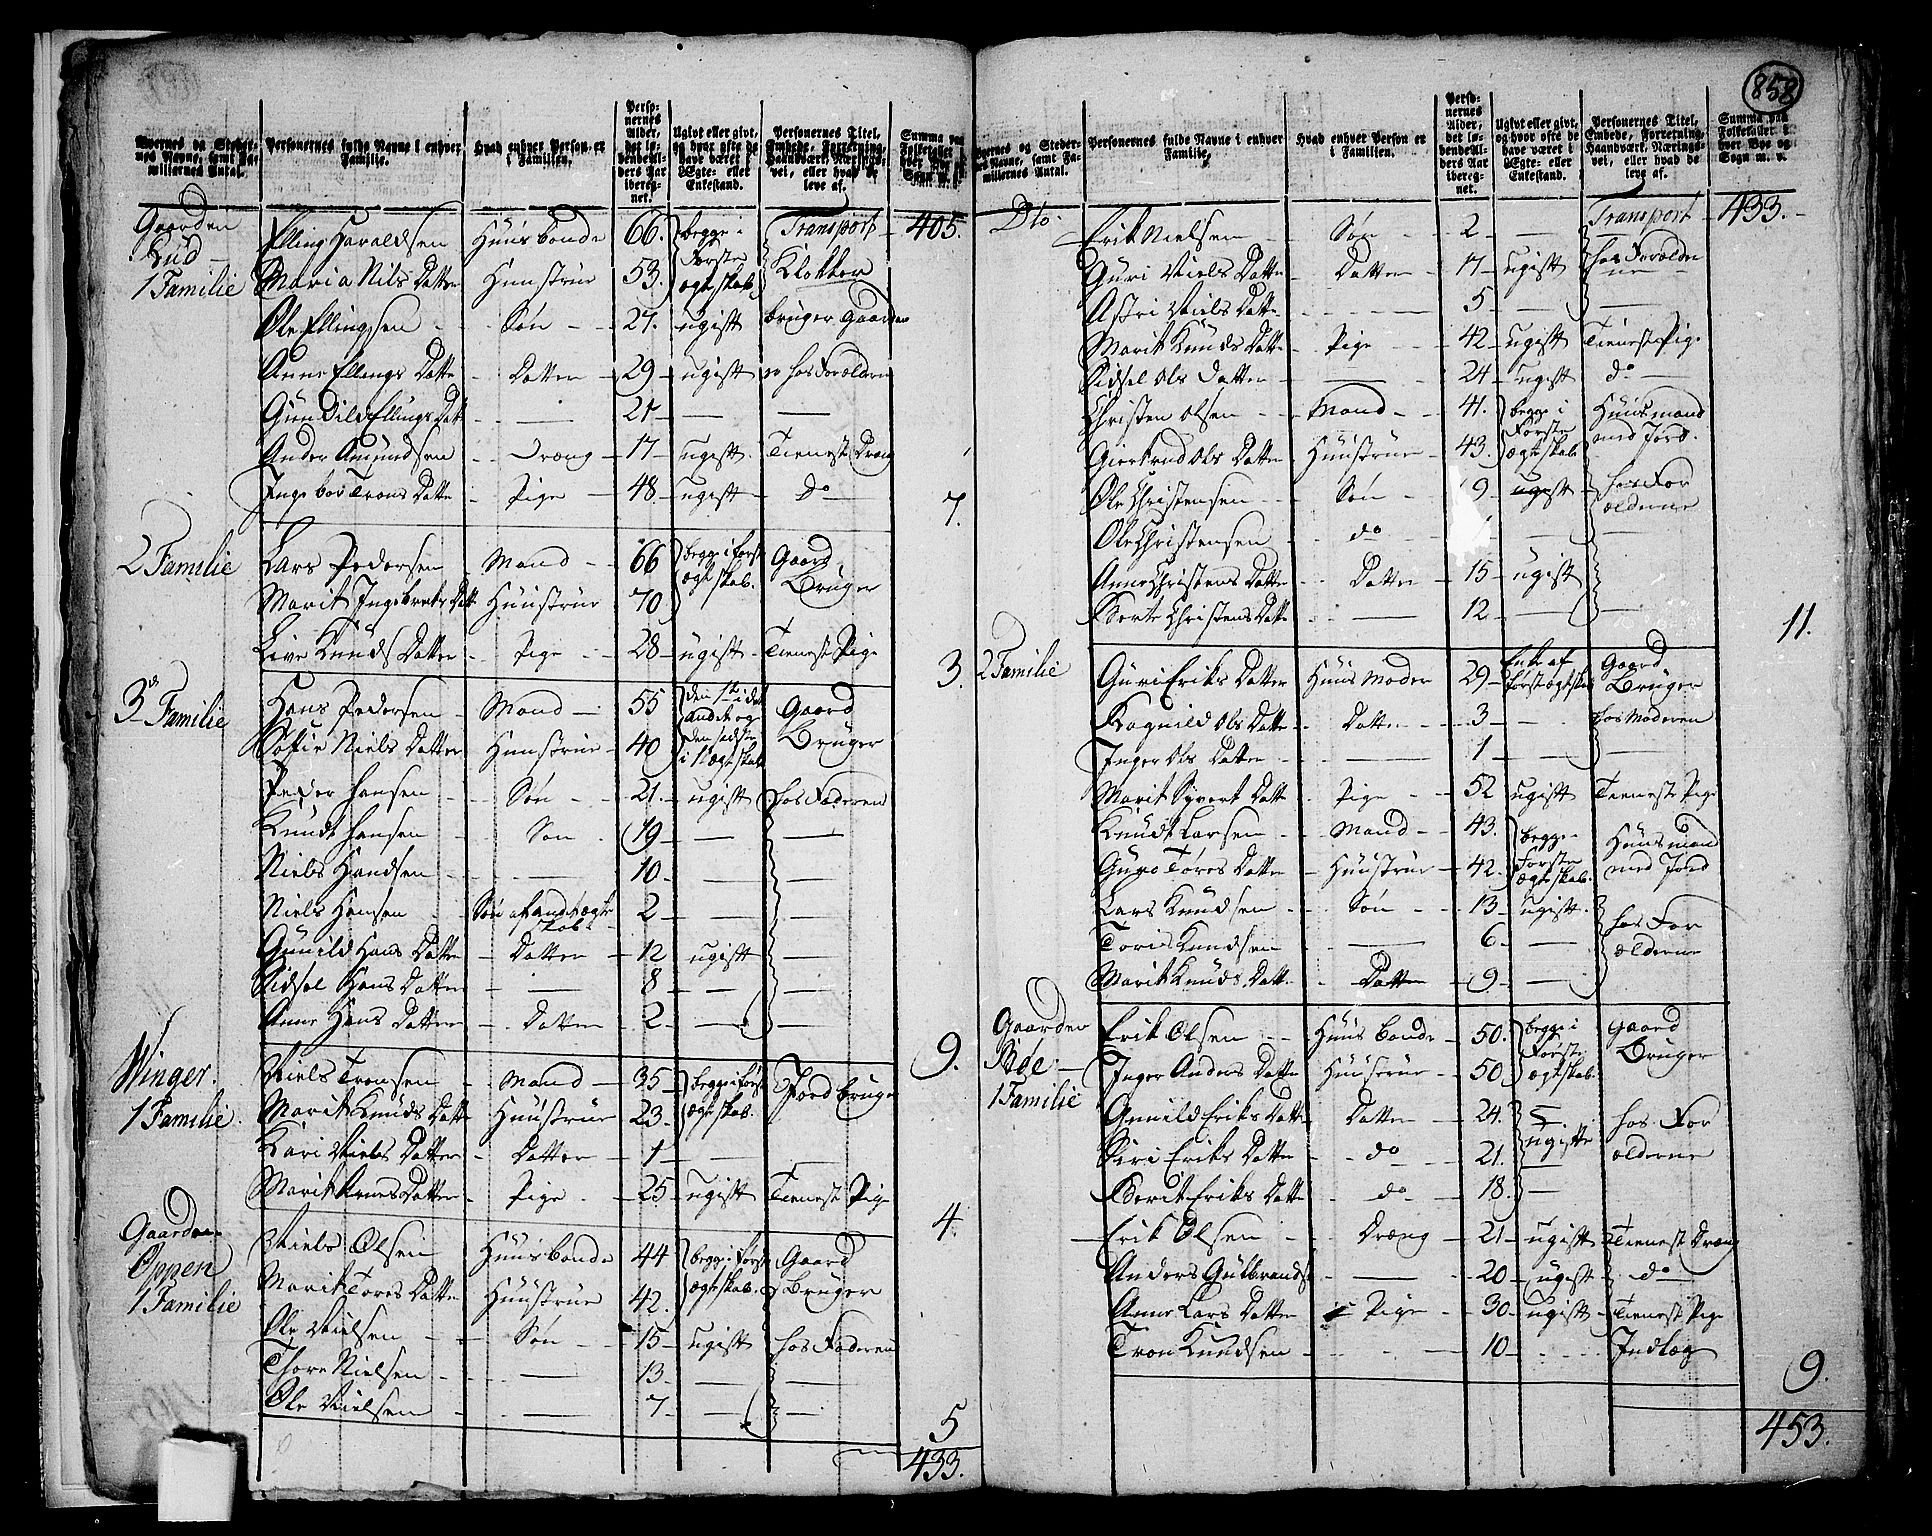 858
Byernes og Stedernes Navne, samt Familiernes Antal.
Personernes fulde Navne i enhver Familie.
Hvad enhver Person er i Familien.
Personernes Alder, det løbendeAlders Aar iberegnet.
Ugivt eller givt, og hvor ofte de have været i Ægte- eller Enkestand.
Personernes Titel, Embede, Forretning, Haandværk, Næringsvei, eller hvad de leve af.
Summa paa Folketallet i hver Bye og Sogn m. v.
Gaarden Rud 1 Familie
Transport 405.
Elling Haraldsen Huusbonde 66. begge i Første ægteskab Klokker
Maria Nils Datter Huustrue 53.
Ole Ellingsen Søn 27. ugift bruger Gaarden
Anne Ellings Datter Datter 29 ugift er hos Forældren
Gunild Ellings Datt — 21 — —
Ander Amundsen Dræng 17 ugift Tienest Dræng
Ingebor Trons Datte Pige 48. ugift Do
7.
2 Familie
Lars Pedersen Mand 66 begge i først ægteskab. Gaard Bruger
Marit Ingebrets Datt Huustrue 70
Live Knuds Datter Pige 28 ugift Tienest Pige
3.
3 Familie
Hans Pedersen Mand 55 den 1te i det andet og den sidste i 1t ægteskab Gaard Bruger
Sofie Niels Datter Huustrue 40
Peder Hansen Søn 21. ugift hos Faderen
Knudt Hansen Søn 19 — —
Niels Handsen — 10 — —
Niels Hansen Søn af andet ægteskab 2 — —
Gunild Hans Datter Datter 12 ugift —
Sidsel Hans Datter — 8 — —
Anne Hans Datter Datter 2 — —
9.
Winger. 1 Familie.
Niels Tronsen Mand 35 begge i først ægteskab. Jord bruger
Marit Knuds Datte Huustrue 23.
Kari Niels Datter Datter 1 — —
Marit Arnes Datter Pige 25 ugift Tienest Pige
4.
Gaarden Oppen 1 Familie
Niels Olsen Huusbonde 44 begge i først ægteskab. Gaard Bruger
Marit Tores Datte Huustrue 42.
Ole Nielsen Søn 15 ugift hos Faderen
Thore Nielsen — 13 — —
Ole Nielsen — 7 — —
5
433.
Byernes og Stedernes Navne, samt Familiernes Antal.
Personernes fulde Navne i enhver Familie.
Hvad enhver Person er i Familien.
Personernes Alder, det løbendeAlders Aar iberegnet.
Ugivt eller givt, og hvor ofte de have været i Ægte- eller Enkestand.
Personernes Titel, Embede, Forretning, Haandværk, Næringsvei, eller hvad de leve af.
Summa paa Folketallet i hver Bye og Sogn m. v.
Dto Transport 433.
Erik Nielsen Søn 2 — hos Forældrene
Guri Niels Datte Datter 17 ugift
Astri Niels Datte — 5 — —
Marit Knuds Datte Pige 42 ugift Tienest Pige
Sidsel Ols Datter — 24 ugift do
Christen Olsen Mand 41. begge i Første ægteskab Huusmand med Jord.
Giertrud Ols Datte Huustrue 43.
Ole Christensen Søn 9 ugift hos Forælderne
Ole Christensen do — —
Anne Christens Datte Datter 15 ugift
Berte Christens Datte — 12 — —
11.
2 Familie
Guri Eriks Datter Huus Moder 29 Enke af første ægteskab Gaard Bruger
Ragnild Ols Datte Datter 3 — hos Moderen
Inger Ols Datte — 1 — —
Marit Syvert Datte Pige 52 ugift Tienest Pige
Knudt Larsen Mand 43. begge Første ægteskab. Huusmand med Jord
Guro Tores Datte Huustrue 42.
Lars Knudsen Søn 13 ugift. hos Forælderne
Toris Knudsen — 6 —
Marit Knuds Datt Datter 9 —
Gaarden Bøe 1 Familie
Erik Olsen Huusbonde 50. begge i Første ægteskab. Gaard Bruger
Inger Anders Datte Huustrue 50
Gunild Eriks Datte Datter 24. ugifte hos Forælderne
Siri Eriks Datte do 21.
Berit Eriks Datte do 18. —
Erik Olsen Dræng 21 ugift Tienest Dræng
Anders Gulbrands — 20 ugift do
Anne Lars Datter Pige 30 ugift Tienest Pige
Tron Knudsen 10 Indlæg
9.
453.